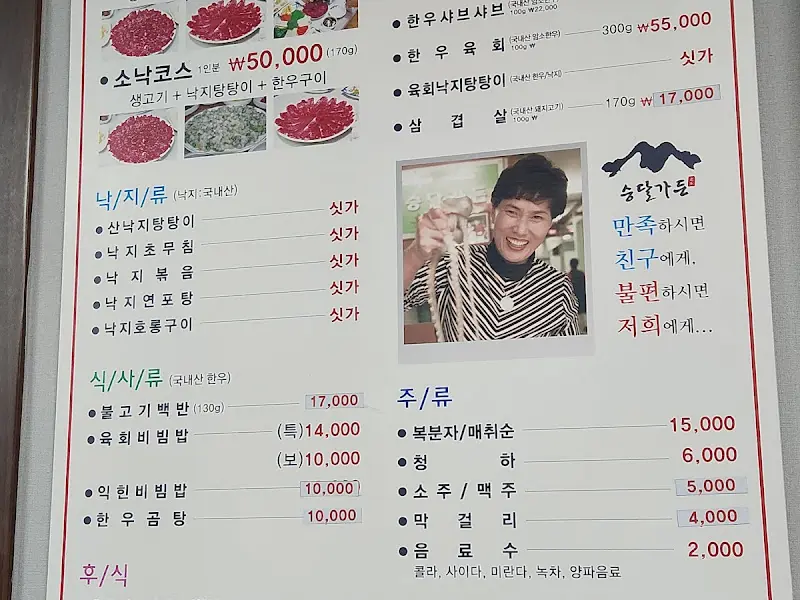 소낙코스 1인분 ₩50,000 (170g)
생고기 + 낙지탕탕이 + 한우구이
낙/지/류 (낙지:국내산)
산낙지탕탕이 싯가
낙지초무침 싯가
낙지볶음 싯가
낙지연포탕 싯가
낙지호롱구이 싯가
식/사/류 (국내산 한우)
불고기백반 (130g) 17,000
육회비빔밥 (특)14,000
(보)10,000
익힌비빔밥 10,000
한우곰탕 10,000
후/식
한우샤브샤브 100g ₩22,000
한우육회 (국내산 암소한우) 100g ₩ 300g ₩55,000
육회낙지탕탕이 (국내산 한우/낙지) 싯가
삼겹살 (국내산 돼지고기) 100g ₩ 170g ₩ 17,000
승달가든
만족하시면
친구에게.
불편하시면
저희에게...
주/류
복분자/매취순 15,000
청하 6,000
소주/맥주 5,000
막걸리 4,000
음료수 2,000
콜라, 사이다, 미란다, 녹차, 양파음료